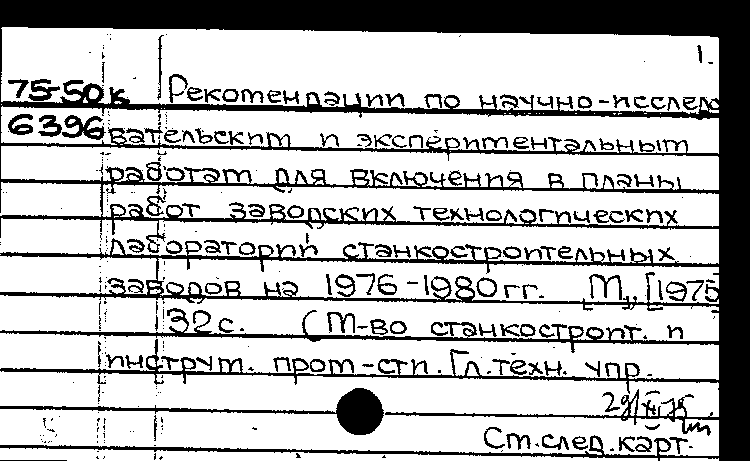 1.
75-50к Рекомендации по научно-исследо
6396 вательским и экспериментальным
работам для включения в планы
работ заводских технологических
лабораторий станкостроительных
заводов на 1976-1980 гг. М., [1975
32 с. (М-во станкостроит. и
инструм. пром-сти. Гл. техн. упр.
29/XII-75
См. след. карт.